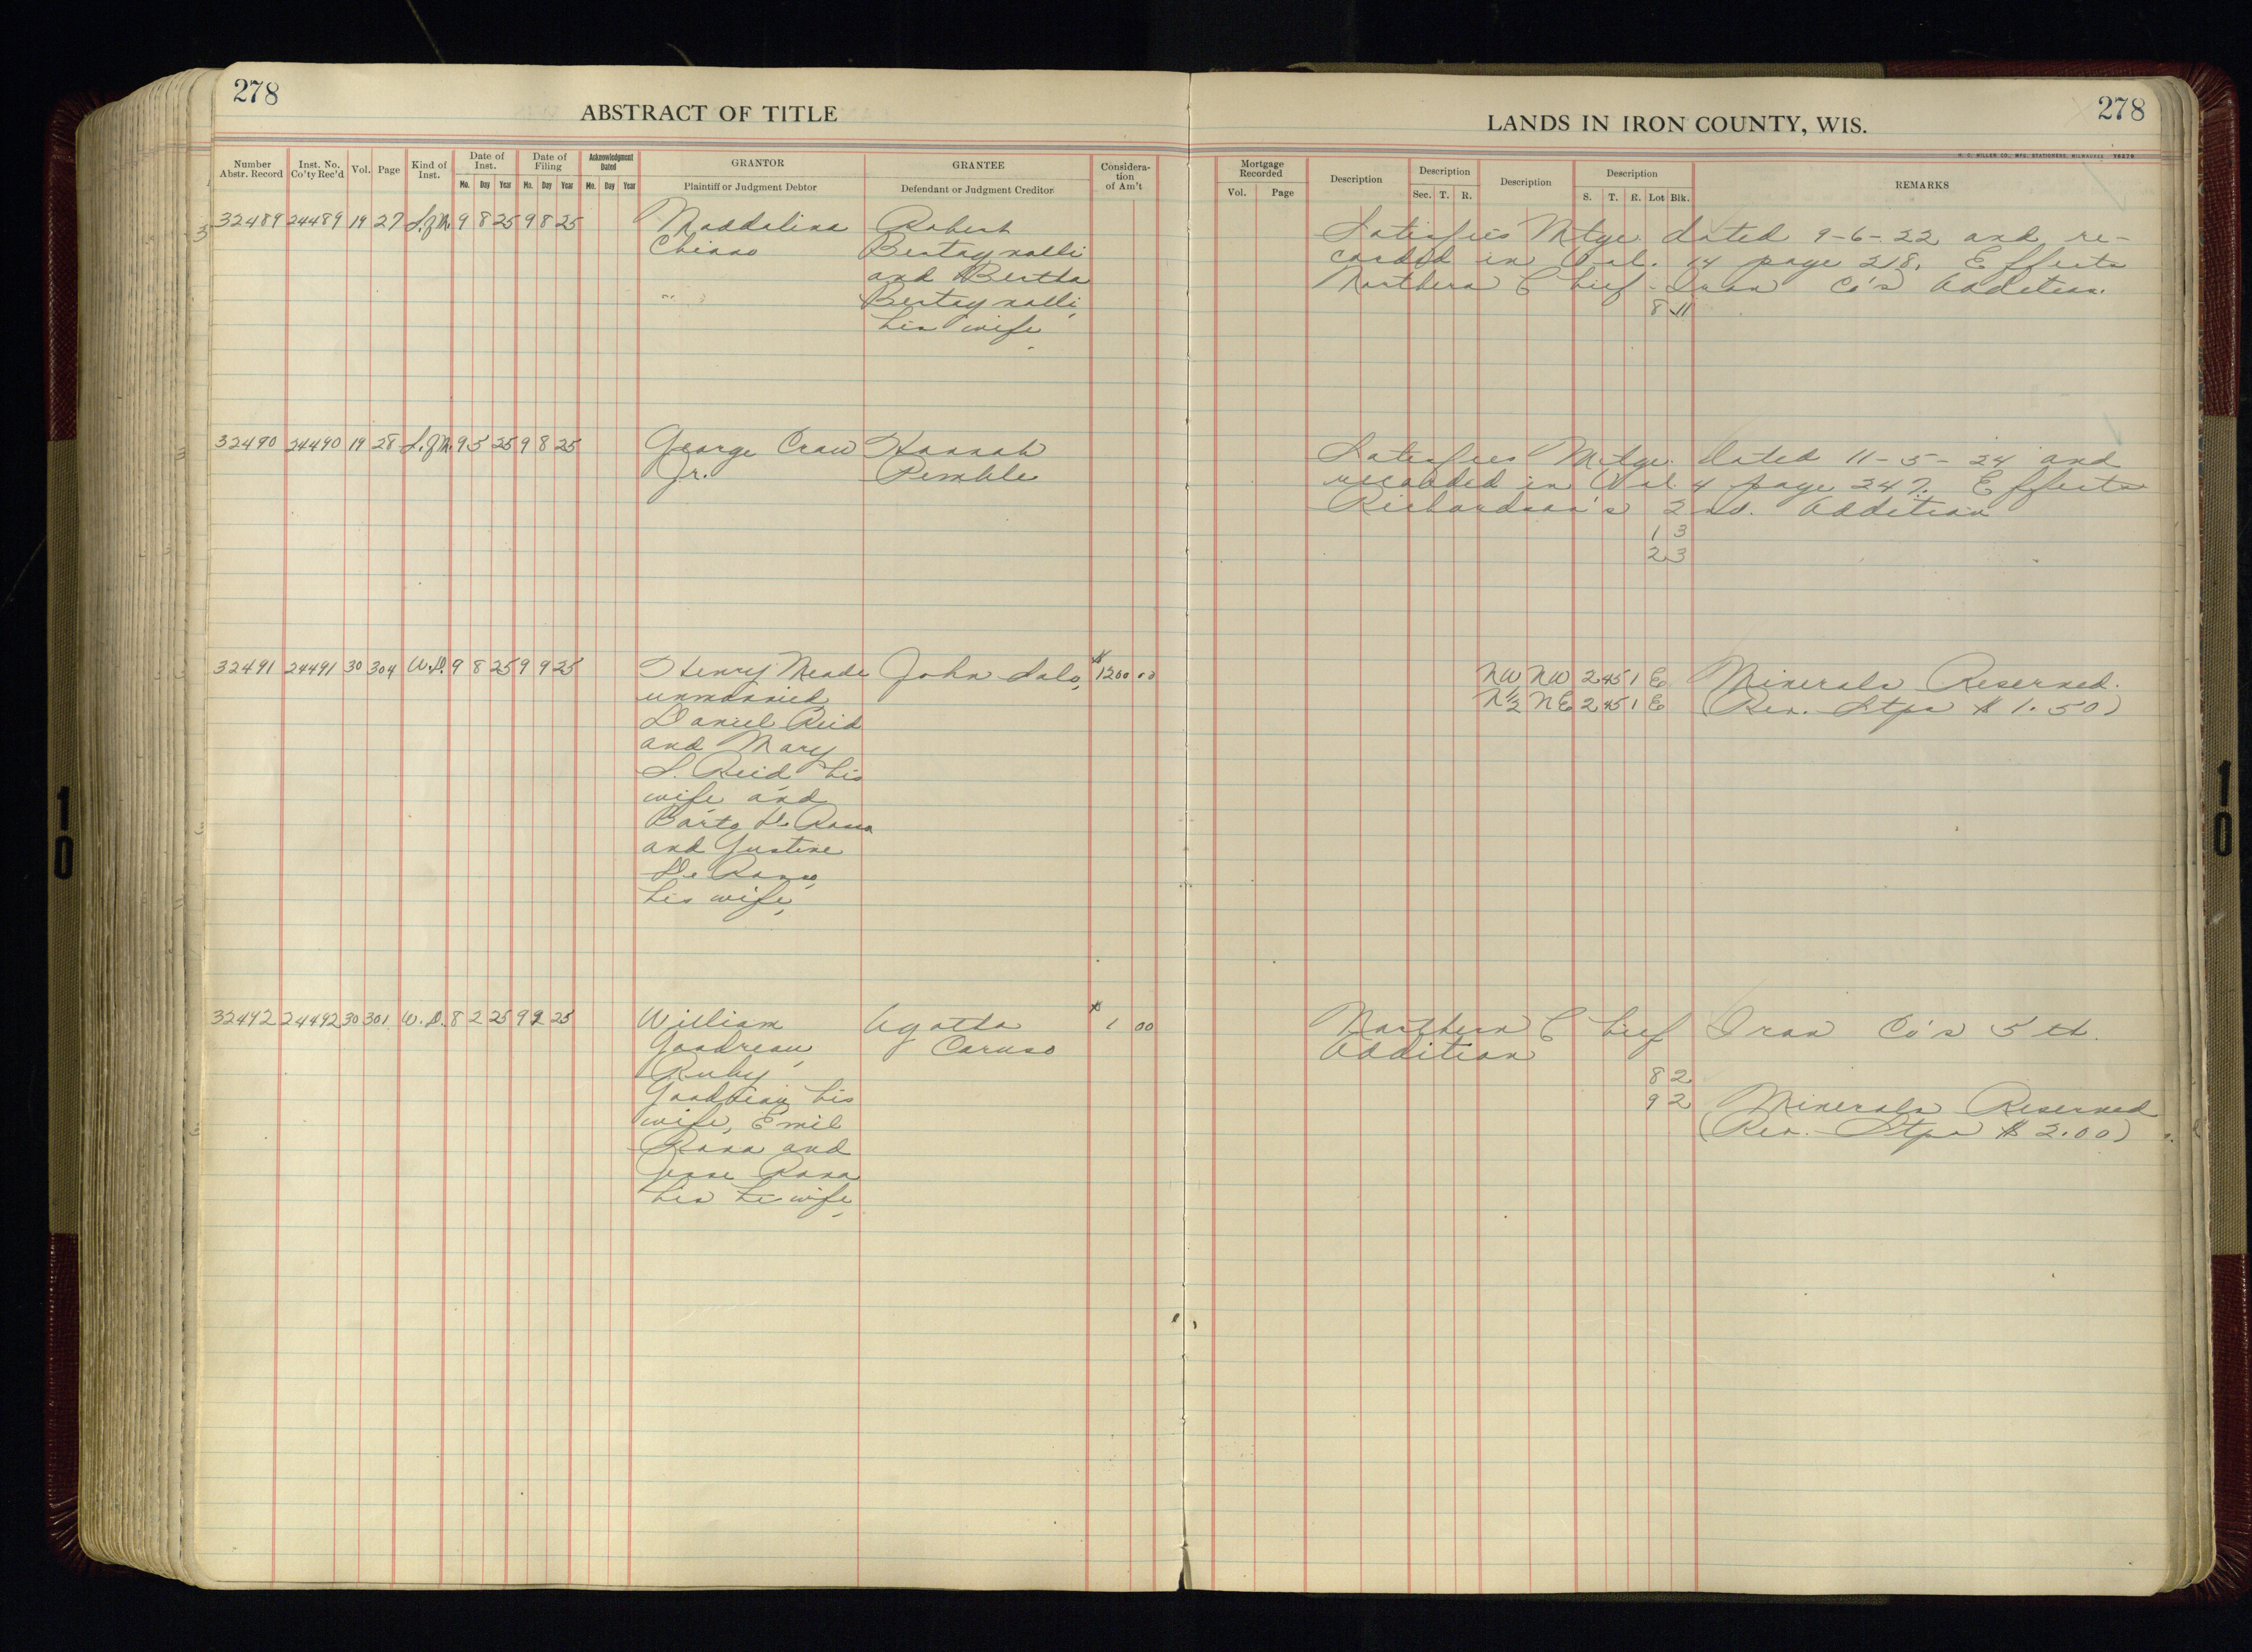 278
ABSTRACT OF TITLE
LANDS IN IRON COUNTY, WIS.
278
H. C. MILLER CO., MFG. STATIONERS, MILWAUKEE Y6276
Number Abstr. Record
Inst. No. Co'ty Rec'd
Vol.
Page
Kind of Inst.
Date of Inst.
Mo. Day Year
Date of Filing
Mo. Day Year
Acknowledgment Dated
Mo. Day Year
GRANTOR
Plaintiff or Judgment Debtor
GRANTEE
Defendant or Judgment Creditor
Considera-
tion
of Am't
Mortgage Recorded
Vol. Page
Description
Description
Sec. T. R.
Description
Description
S. T. R. Lot Blk.
REMARKS
32489 24489 19 27 S.of M. 9 8 25 9 8 25 Maddalina Robert
Chiaro Bertagnolli
and Bertha
Bertagnolli,
his wife
Satisfies Mtge. dated 9-6-22 and re-
corded in Vol. 14 page 218. Effects
Northern Chief Iron Co's Addition.
8 11
32490 24490 19 28 S.of M. 9 5 25 9 8 25 George Craw Hannah
Jr. Pemble
Satisfies Mtge. dated 11-5-24 and
recorded in Vol. 4 page 247. Effects
Richardson's 2nd. Addition
1 3
2 3
32491 24491 30 304 W.D. 9 8 25 9 9 25 Henry Meade John Salo, $1200.00
unmarried,
Daniel Reid
and Mary
S. Reid his
wife and
Barto De Rosso
and Justine
De Rosso,
his wife,
NW NW 2 45 1 E Minerals Reserved.
N½ NE 2 45 1 E (Rev. Stps $1.50)
32492 24492 30 301 W.D. 8 2 25 9 9 25 William Agatta $1 00
Goodreau, Caruso
Ruby
Goodreau his
wife, Emil
and
his wife,
Northern Chief Iron Co's 5th.
Addition
8 2
9 2 Minerals Reserved
(Rev. Stps $2.00)
10
10